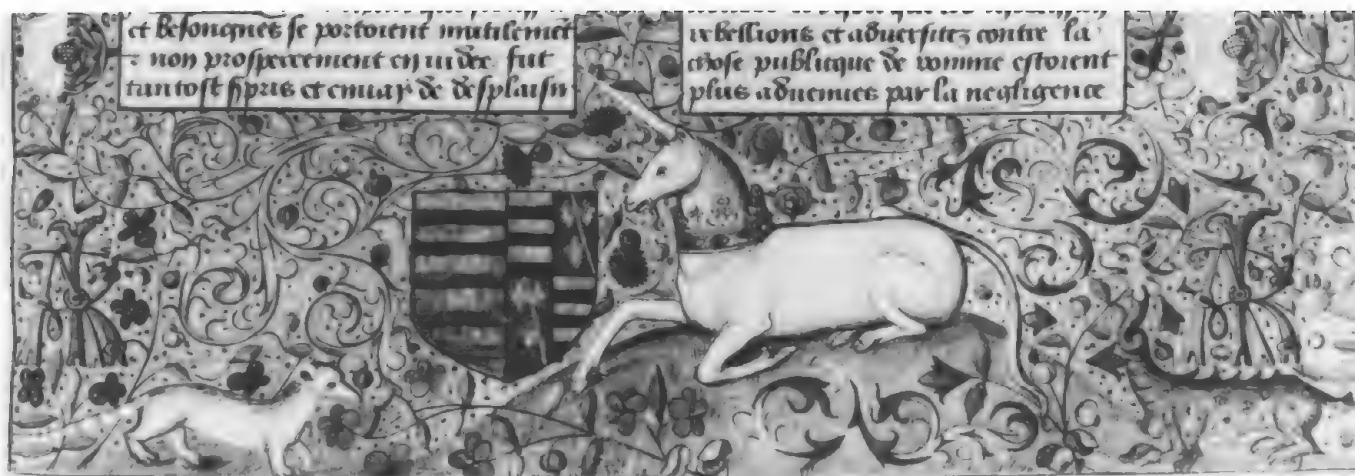 et besongnes se portoient inutilemēt
⁊ non prosperement en iudee fut
tantost espris et
rebellions et aduersitez contre la
chose publicque de romme estoient
plus aduenues par la negligence